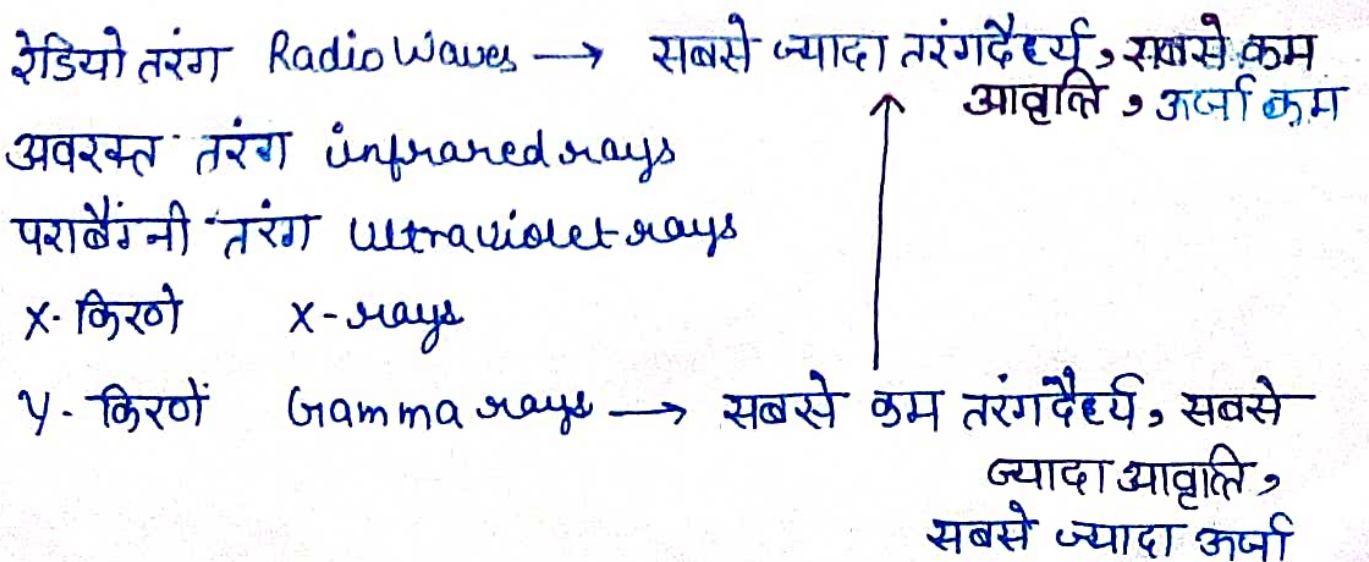 रेडियो तरंग Radio Waves → सबसे ज्यादा तरंगदैर्ध्य, सबसे कम
आवृत्ति, ऊर्जा कम
अवरक्त तरंग infrared rays
पराबैंगनी तरंग ultraviolet rays
X- किरणे X-rays
γ- किरणें Gamma rays → सबसे कम तरंगदैर्ध्य, सबसे
ज्यादा आवृत्ति,
सबसे ज्यादा ऊर्जा